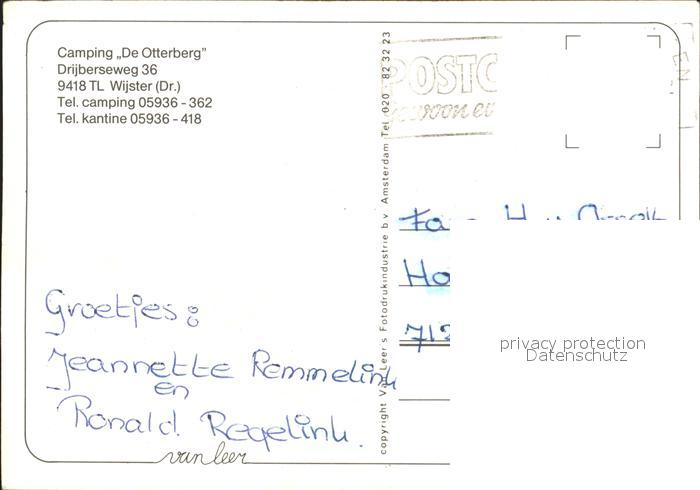 Camping „De Otterberg”
Drijberseweg 36
9418 TL Wijster (Dr.)
Tel. camping 05936 - 362
Tel. kantine 05936 - 418
Groetjes:
Jeannette Remmelink
en
Ronald Regelink.
van leer
copyright Van Leer's Fotodrukindustrie b.v. Amsterdam Tel. 020 - 82 32 23
POSTC
gewoon ev
EN
Fa
Ho
712
privacy protection
Datenschutz